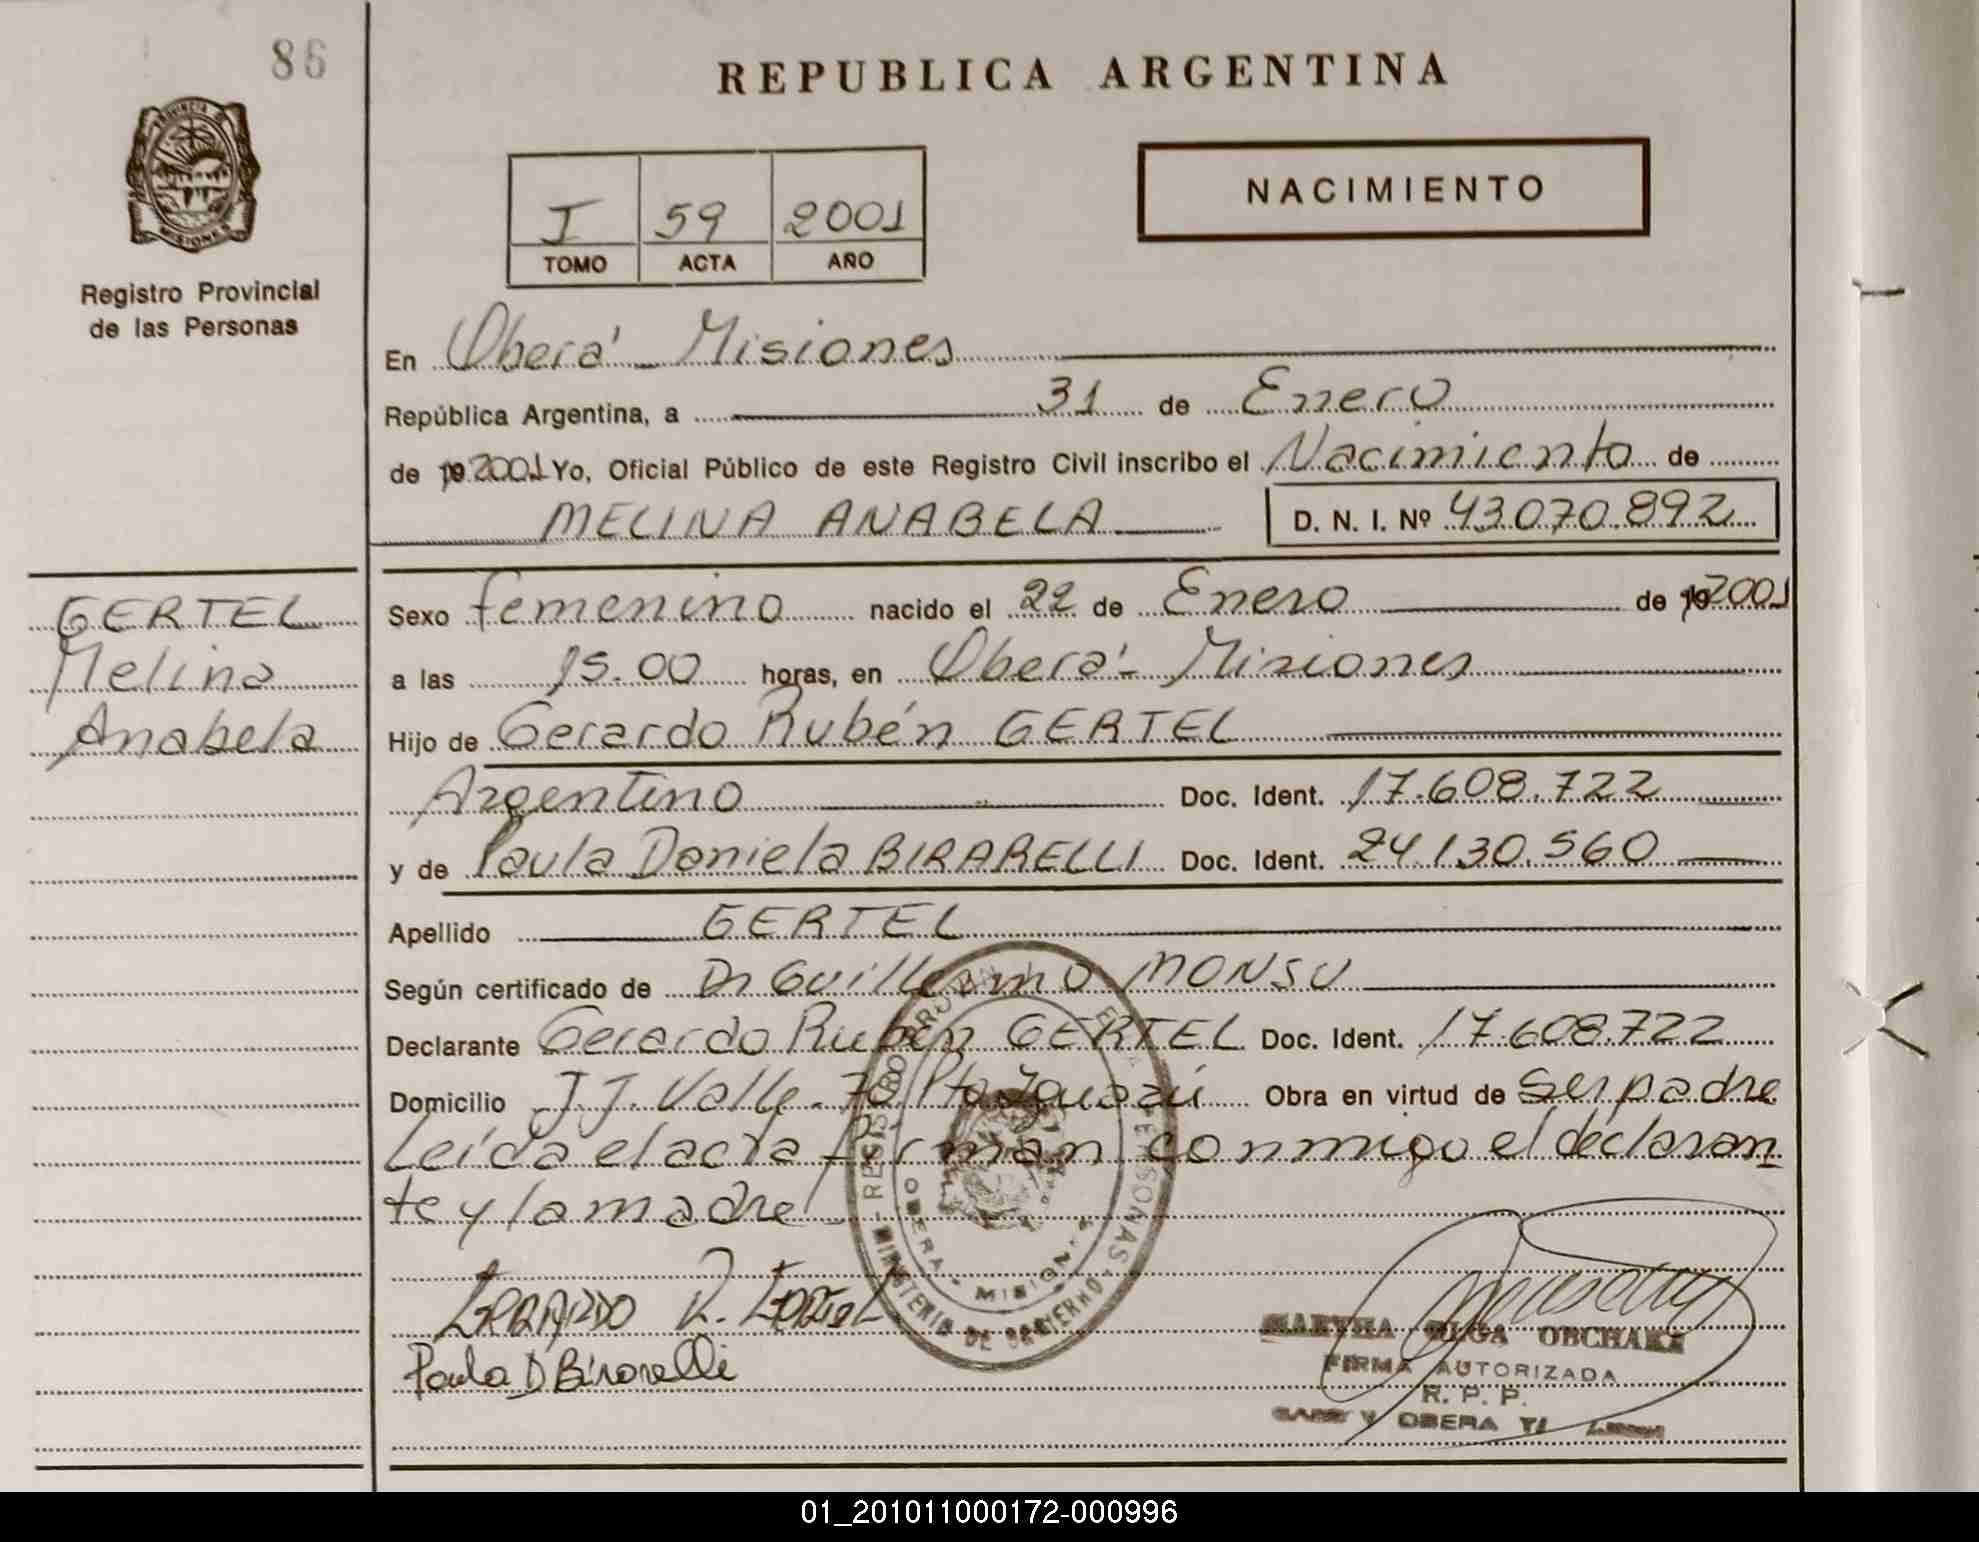 86
REPUBLICA ARGENTINA
PROVINCIA DE
MISIONES
Registro Provincial
de las Personas
I 59 2001
TOMO ACTA AÑO
NACIMIENTO
En Oberá - Misiones
República Argentina, a 31 de Enero
de 19 2001 Yo, Oficial Público de este Registro Civil inscribo el Nacimiento de
MELINA ANABELA D. N. I. Nº 43.070.892
GERTEL
Melina
Anabela
Sexo femenino nacido el 22 de Enero de 19 2001
a las 15.00 horas, en Oberá - Misiones
Hijo de Gerardo Rubén GERTEL
Argentino Doc. Ident. 17.608.722
y de Paula Daniela BIRARELLI Doc. Ident. 24.130.560
Apellido GERTEL
Según certificado de Dr Guillermo MONSU
Declarante Gerardo Rubén GERTEL Doc. Ident. 17.608.722
Domicilio J.J. Valle - 780 Pto Iguazú Obra en virtud de ser padre
Leída el acta firman conmigo el declaran
te y la madre
MINISTERIO DE GOBIERNO
OBERA - MISIONES
GERARDO R. GERTEL
Paula D Birarelli
MARTHA OLGA
FIRMA AUTORIZADA
R. P. P.
OBERA
01_201011000172-000996